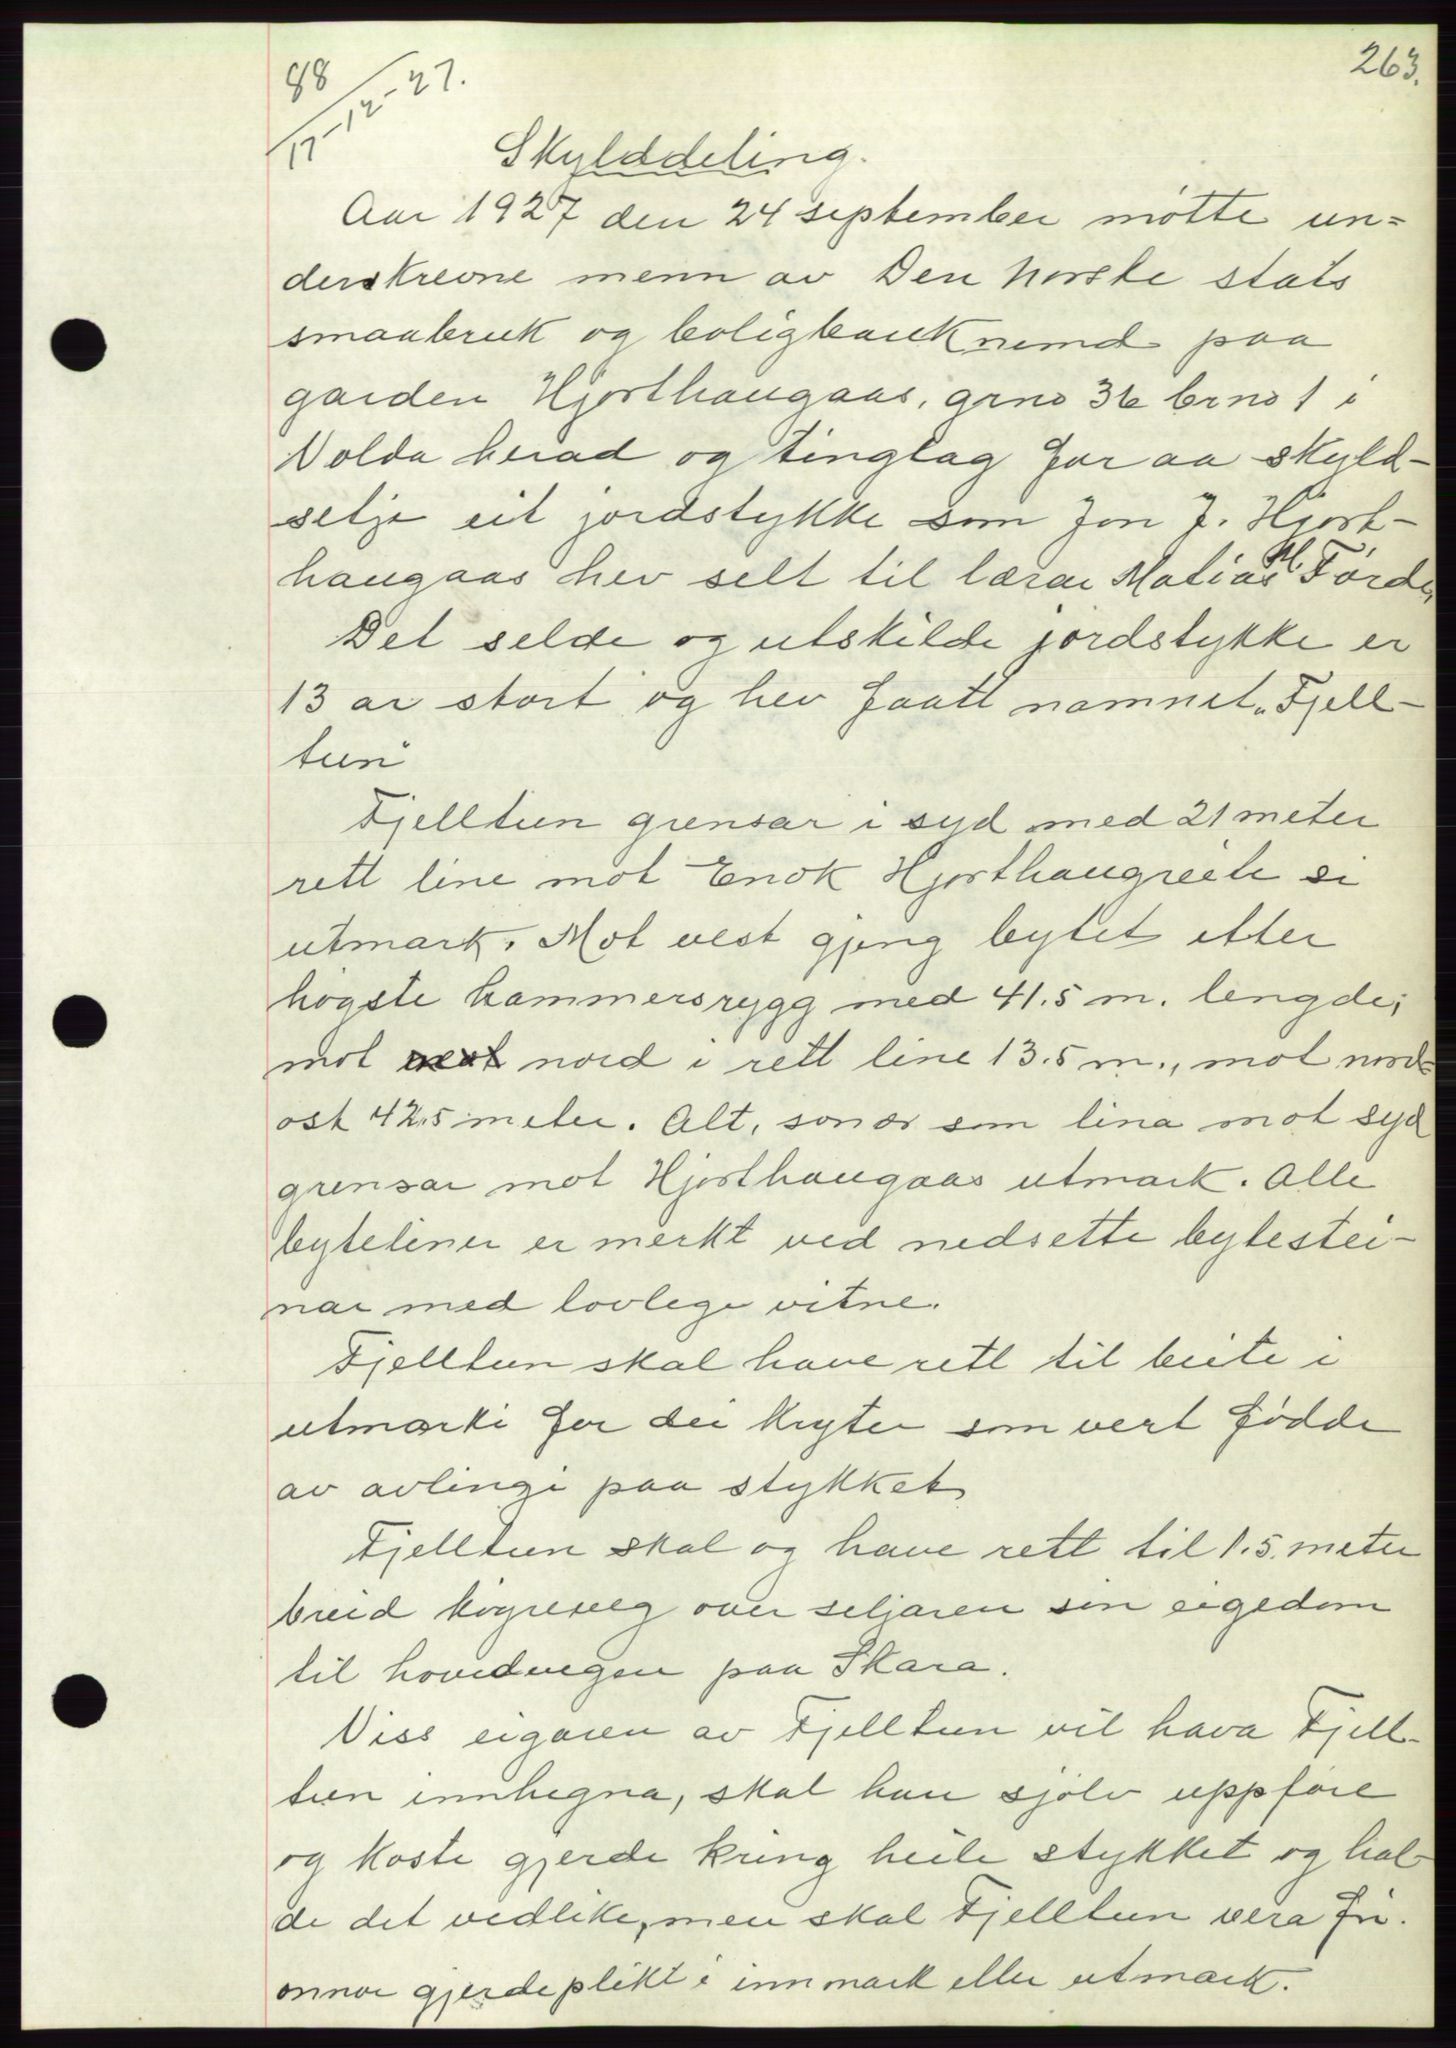 88
17-12-27.
263.
Skylddeling.
Aar 1927 den 24 september møtte un=
derskrevne menn av Den norske stats
smaabruk og boligbank nemd paa
garden Hjorthaugaas, grno 36 brno 1 i
Volda herad og tinglag for aa skyld-
setje eit jordstykke som Jon J. Hjort-
haugaas hev selt til lærar Matias M. Førde,
Det selde og utskilde jordstykke er
13 ar stort og hev faatt namnet „Fjell-
tun"
Fjelltun grensar i syd med 21 meter
rett line mot Enok Hjorthaugreite si
utmark. Mot vest gjeng bytet etter
høgste hammersrygg med 41.5 m. lengde;
mot nord i rett line 13.5 m., mot nord=
ost 42.5 meter. Alt, sonær som lina mot syd
grensar mot Hjorthaugaas utmark. Alle
byteliner er merkt ved nedsette bytestei-
nar med lovlege vitne.
Fjelltun skal have rett til beite i
utmarki for dei kryter som vert fødde
av avlingi paa stykket
Fjelltun skal og have rett til 1.5. meter
breid køyreveg over seljaren sin eigedom
til hovedvegen paa Skara.
Viss eigaren av Fjelltun vil hava Fjell-
tun innhegna, skal han sjølv uppføre
og koste gjerde kring heile stykket og hal-
de det vedlike, men skal Fjelltun vera fri.
onnor gjerdeplikt i innmark eller utmark.